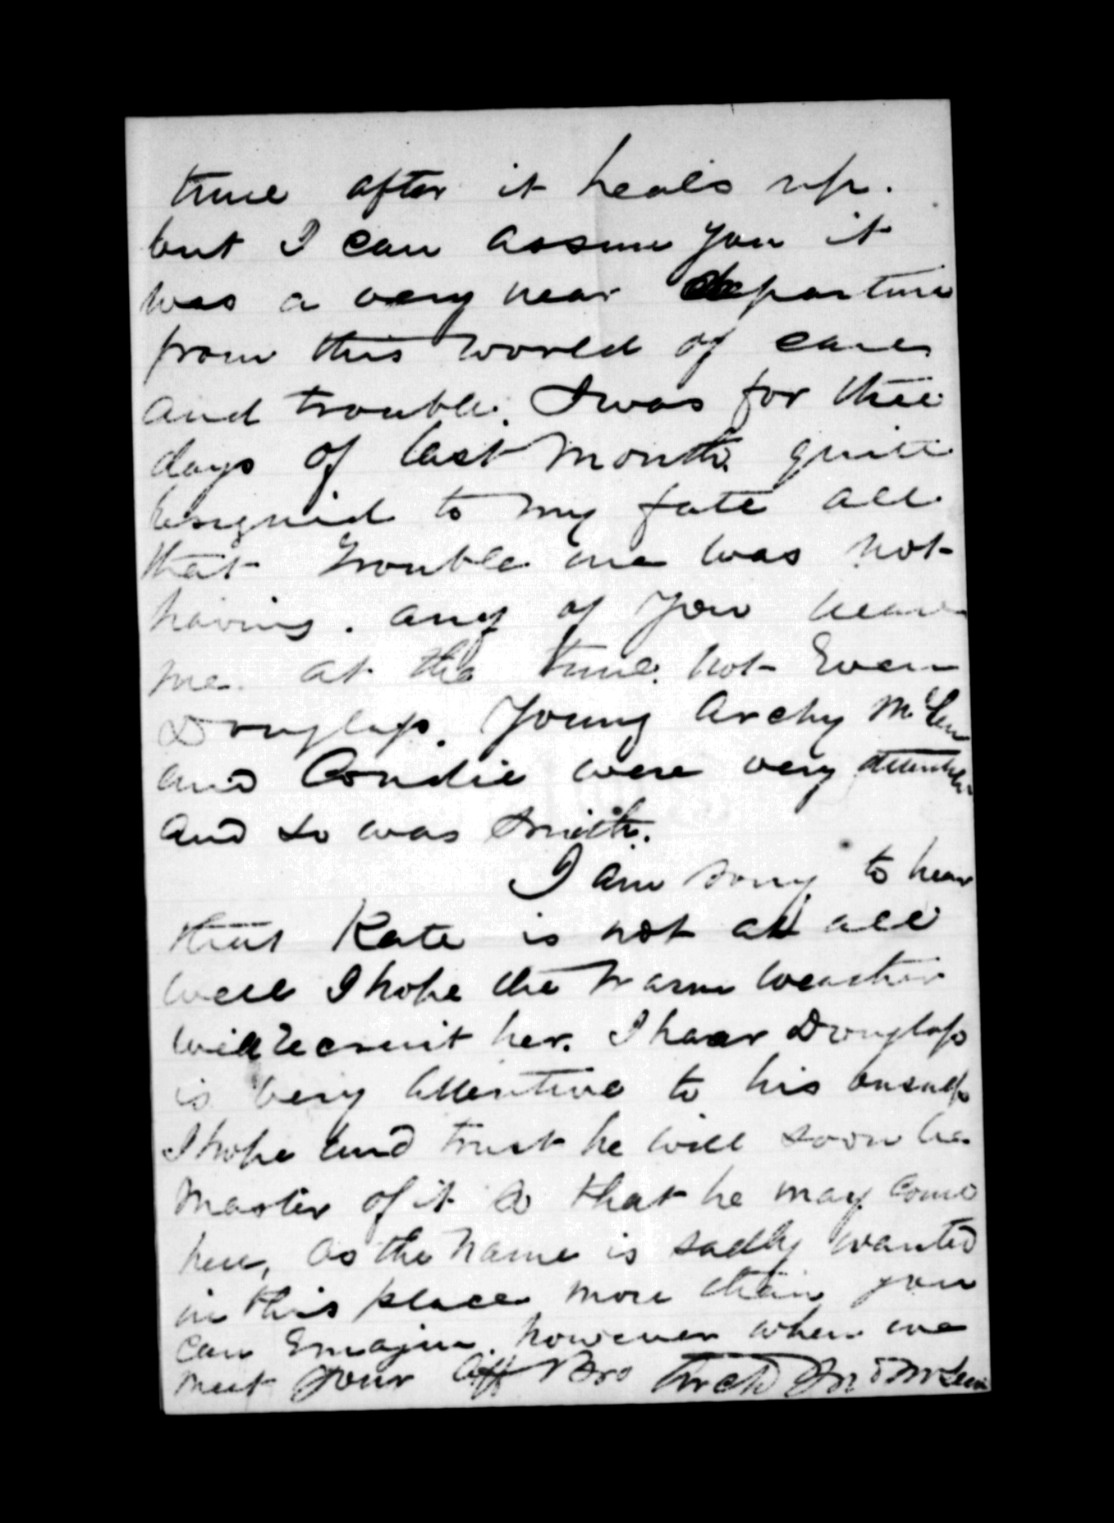 time after it heals up.
but I can assure you it
was a very near departure
from this world of cares
and trouble. I was for three
days of last Month quite
resigned to my fate all
that trouble me was not
having any of you near
me at the time. not Even
Douglass. Young Archy McLean
and Condie were very attentive
and so was Smith.
I am sorry to hear
that Kate is not at all
well I hope the warm weather
will recruit her. I hear Douglass
is very attentive to his business
I hope and trust he will soon be
Master of it so that he may come
here, as the name is sadly wanted
in this place more than you
can Emagin. however when we
meet Your Aff Bro Archd McLean